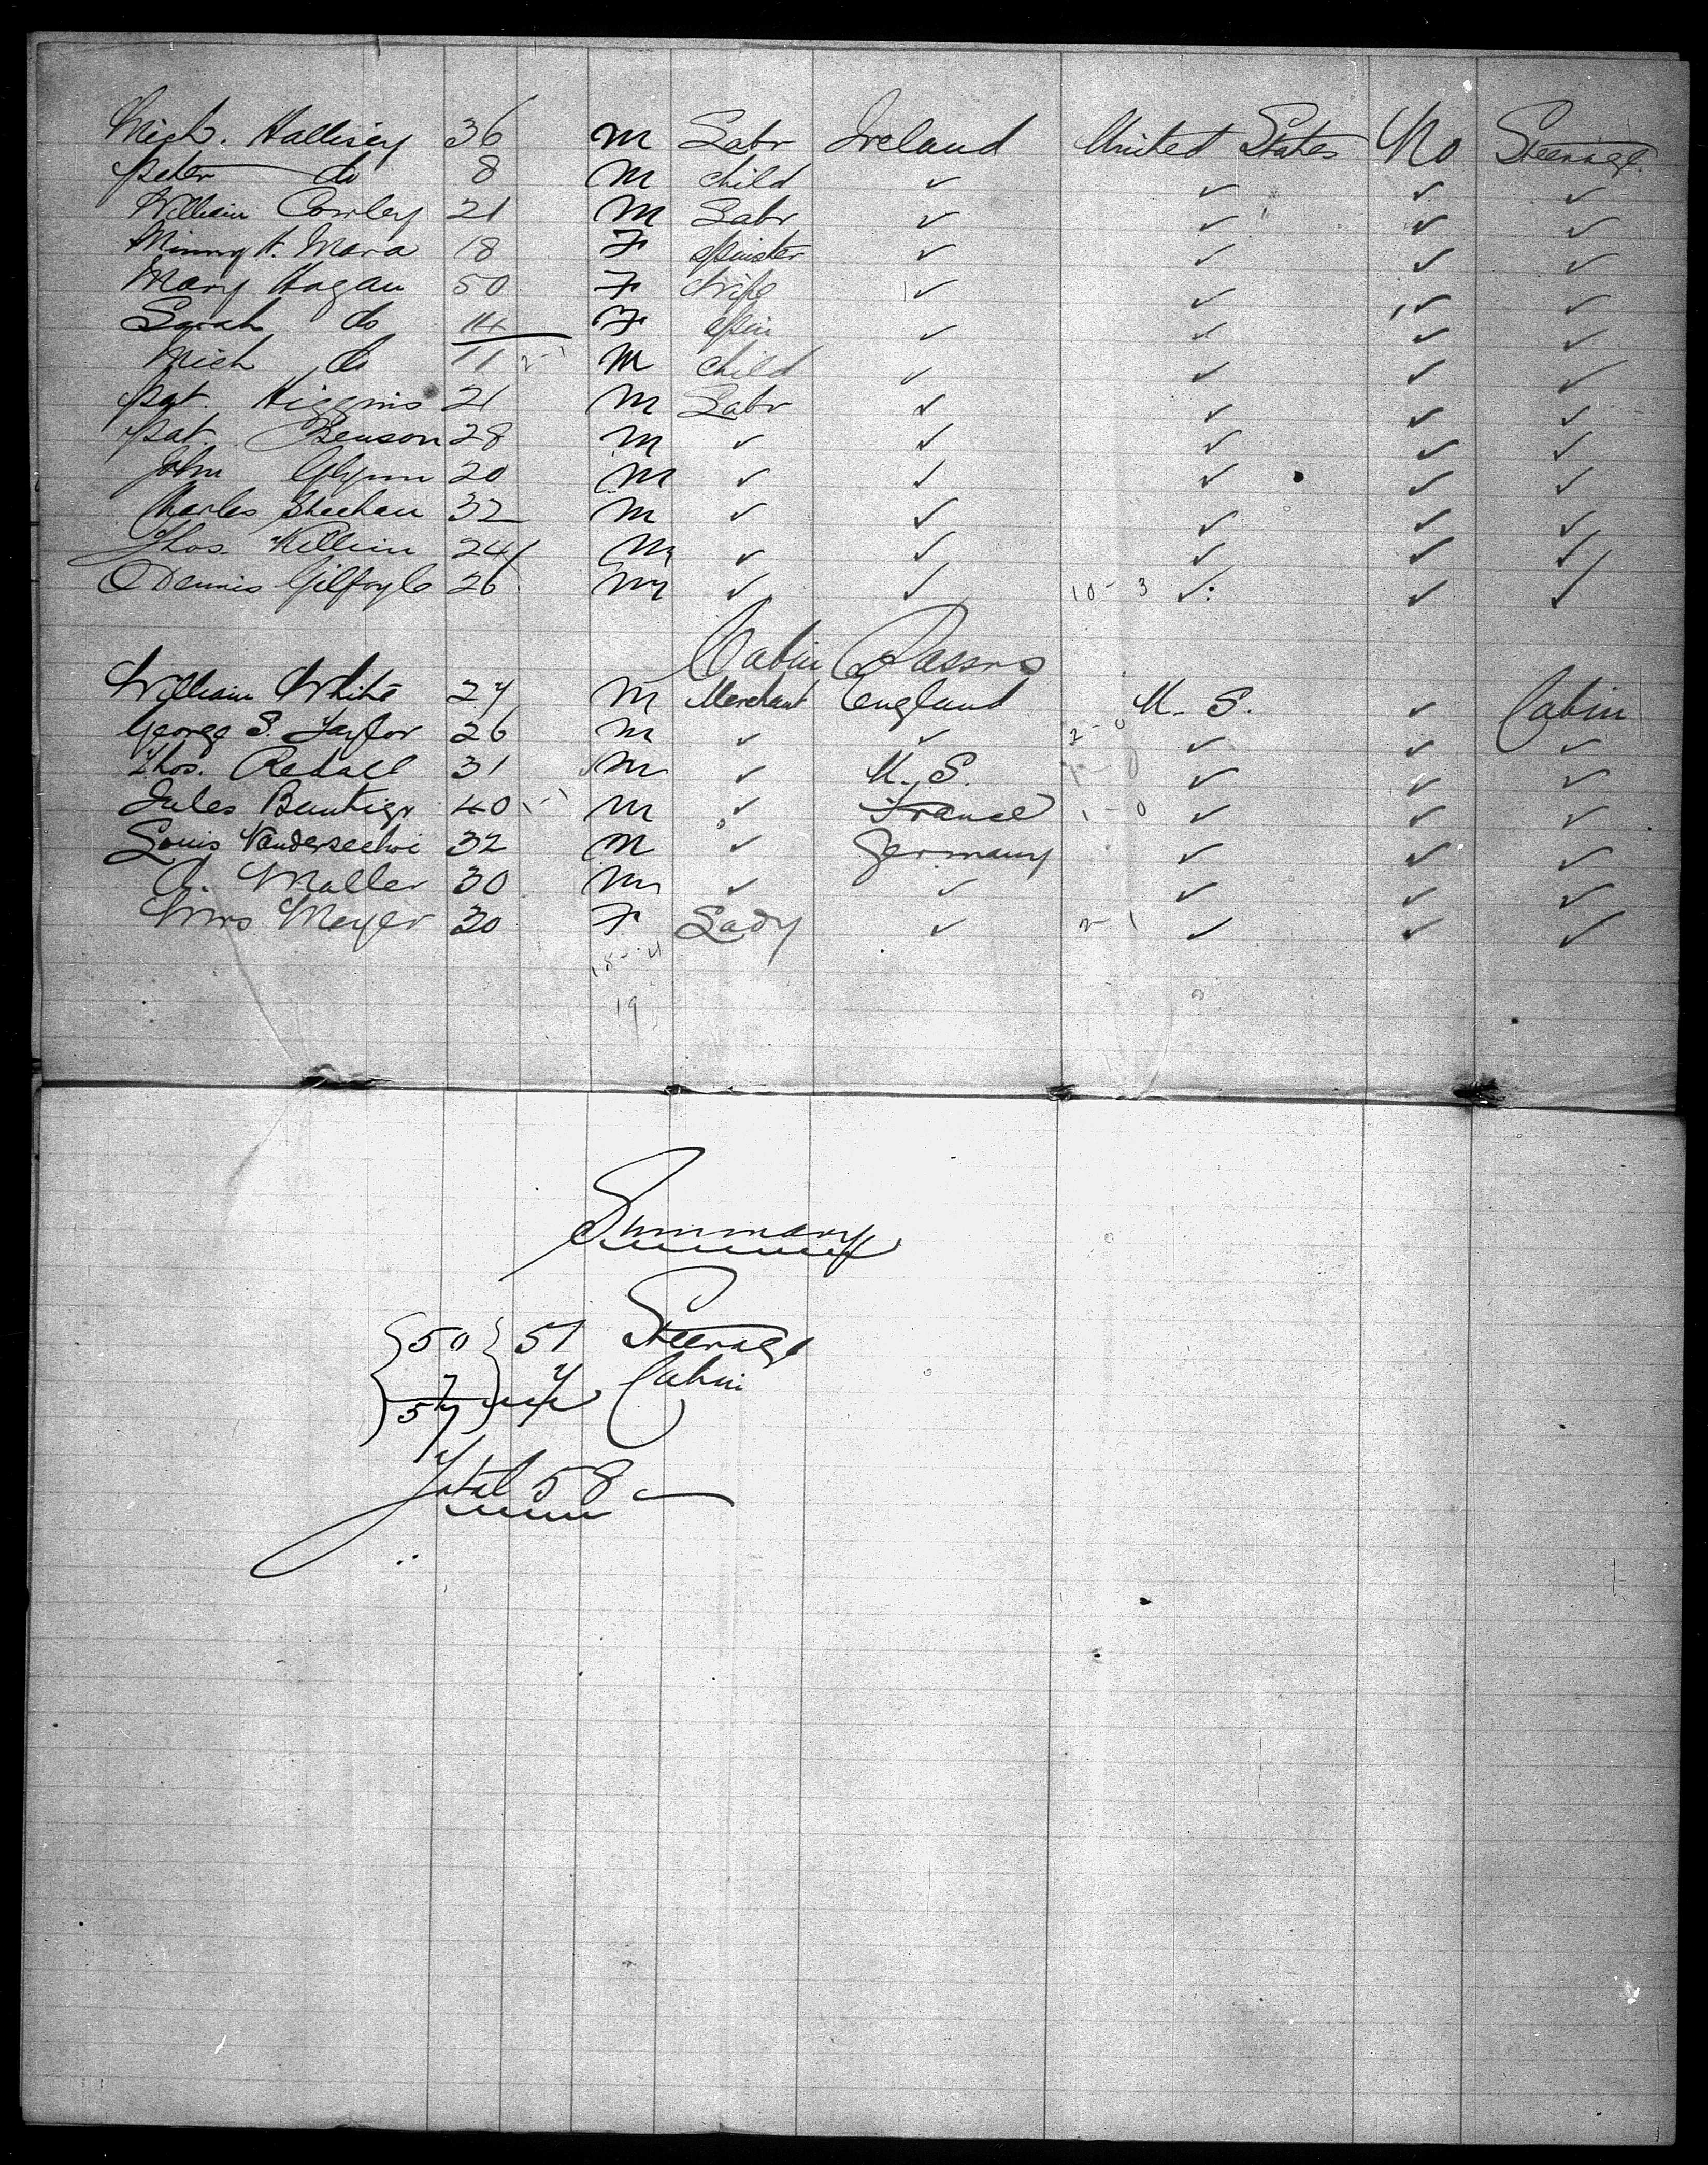 Mich. Hallisey 36 M Labr Ireland United States No Steerage
Peter do 8 M child ✓ ✓ ✓ ✓
William Conley 21 M Labr ✓ ✓ ✓ ✓
Minny A. Mara 18 F Spinster ✓ ✓ ✓ ✓
Mary Hogan 50 F Wife ✓ ✓ ✓ ✓
Sarah do 14 F Spin ✓ ✓ ✓ ✓
Mich do 11 2-1 M child ✓ ✓ ✓ ✓
Pat. Higgins 21 M Labr ✓ ✓ ✓ ✓
Pat. Benson 28 M ✓ ✓ ✓ ✓ ✓
John Glynn 20 M ✓ ✓ ✓ ✓ ✓
Charles Sheehan 32 M ✓ ✓ ✓ ✓ ✓
Thos. Killein 24 M ✓ ✓ ✓ ✓ ✓
Dennis Gilfoyle 26 M ✓ ✓ 10-3 ✓ ✓ ✓
Cabin Passrs
William White 27 M Merchant England U. S. ✓ Cabin
George S. Taylor 26 M ✓ ✓ 2-0 ✓ ✓ ✓
Thos. Redall 31 M ✓ U. S. 1-0 ✓ ✓ ✓
Jules 40 1-1 M ✓ France 1-0 ✓ ✓ ✓
Louis 32 M ✓ Germany ✓ ✓ ✓
A. Maller 30 M ✓ ✓ ✓ ✓ ✓
Mrs Meyer 30 F Lady ✓ 2-1 ✓ ✓ ✓
15-4
19
Summary
50 51 Steerage
7 7 Cabin
57
Total 58